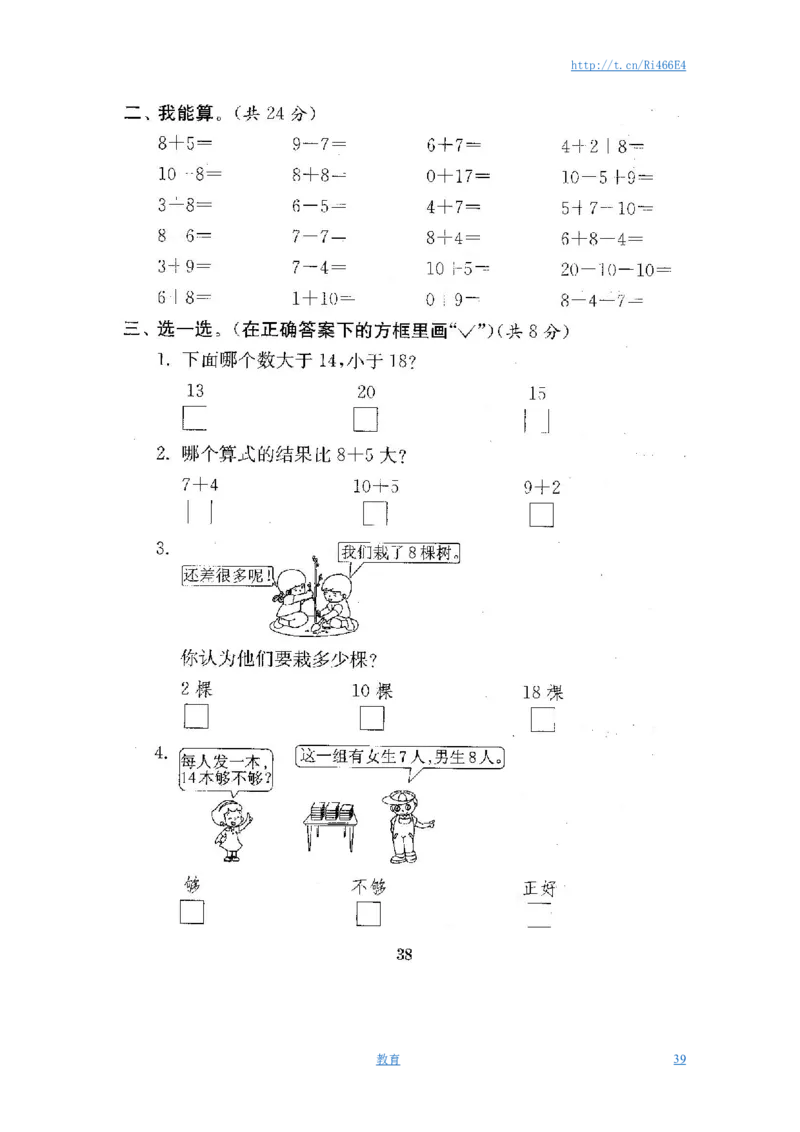 http://t.cn/Ri466E4
二、我能算。(共 24 分)
8+5= 9-7= 6+7= 4+2+8=
10-8= 8+8= 0+17= 10-5+9=
3+8= 6-5= 4+7= 5+7-10=
8-6= 7-7= 8+4= 6+8-4=
3+9= 7-4= 10+5= 20-10-10=
6+8= 1+10= 0+9= 8-4-7=
三、选一选。(在正确答案下的方框里画“✓”)(共 8 分)
1. 下面哪个数大于 14,小于 18?
13 20 15
□ □ □
2. 哪个算式的结果比 8+5 大?
7+4 10+5 9+2
□ □ □
3.
我们栽了 8 棵树。
还差很多呢!
你认为他们要栽多少棵?
2 棵 10 棵 18 棵
□ □ □
4.
每人发一本,
14本够不够?
这一组有女生7人,男生8人。
够 不够 正好
□ □ □
38
教育 39